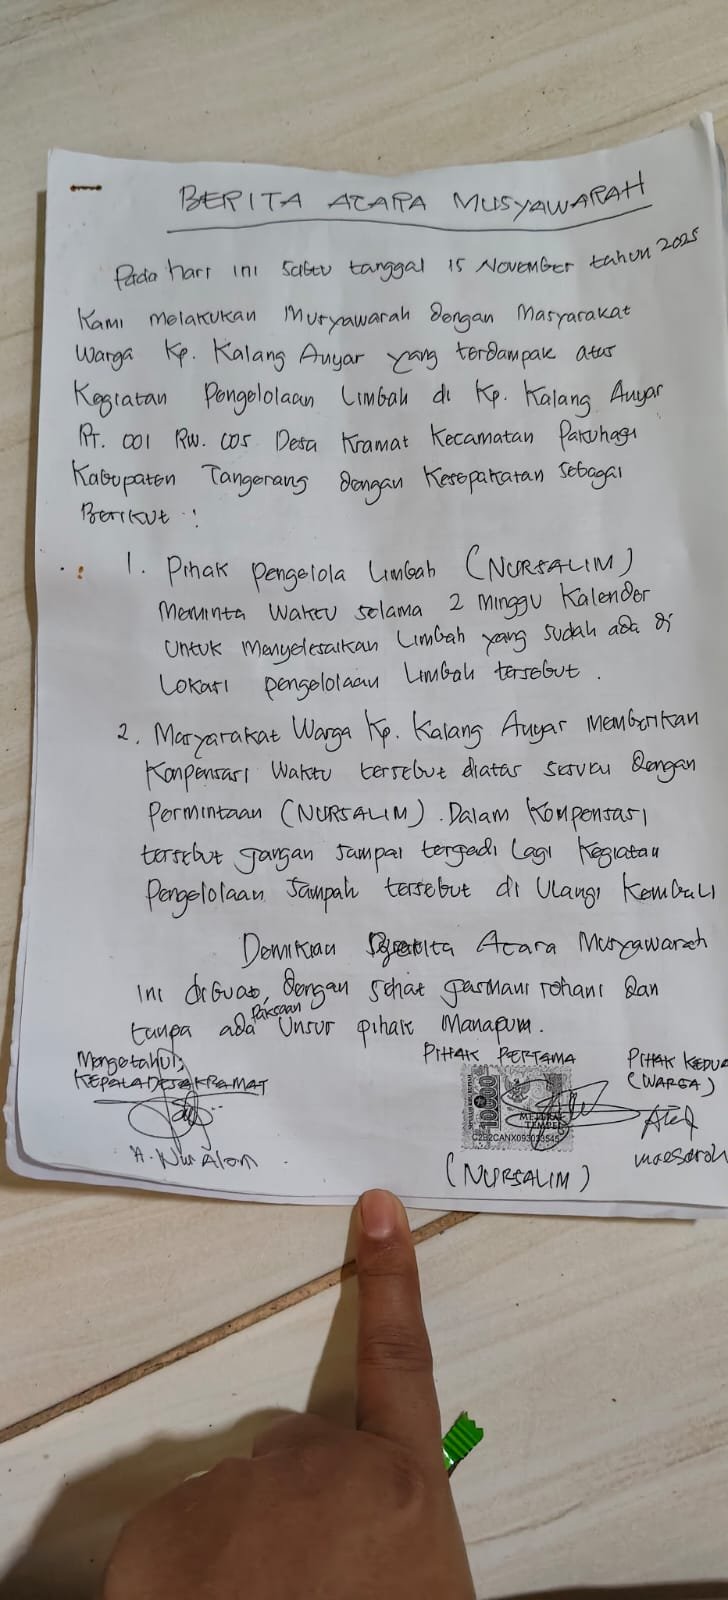 BERITA ACARA MUSYAWARAH
Pada hari ini Sabtu tanggal 15 NOVEMBER tahun 2025
Kami melakukan Musyawarah dengan Masyarakat
Warga Kp. Kalang Anyar yang terdampak atas
Kegiatan Pengelolaan Limbah di Kp. Kalang Anyar
RT. 001 RW. 005 Desa Kramat Kecamatan Pakuhaji
Kabupaten Tangerang dengan Kesepakatan sebagai
Berikut :
1. Pihak pengelola Limbah (NURSALIM)
Meminta Waktu selama 2 Minggu Kalender
Untuk Menyelesaikan Limbah yang sudah ada di
Lokasi pengelolaan Limbah tersebut.
2. Masyarakat Warga Kp. Kalang Anyar Memberikan
Konpensasi Waktu tersebut diatas sesuai dengan
Permintaan (NURSALIM). Dalam Kompensasi
tersebut jangan sampai terjadi Lagi Kegiatan
Pengelolaan Sampah tersebut di Ulangi Kembali
Demikian Berita Acara Musyawarah
Ini dibuat, dengan sehat jasmani rohani dan
tanpa ada paksaan Unsur pihak Manapum.
Mengetahui,
KEPALA DESA KRAMAT
H. Nur Alam
PIHAK PERTAMA
10000
METERAI
TEMPEL
(NURSALIM)
PIHAK KEDUA
(WARGA)
maesaroh